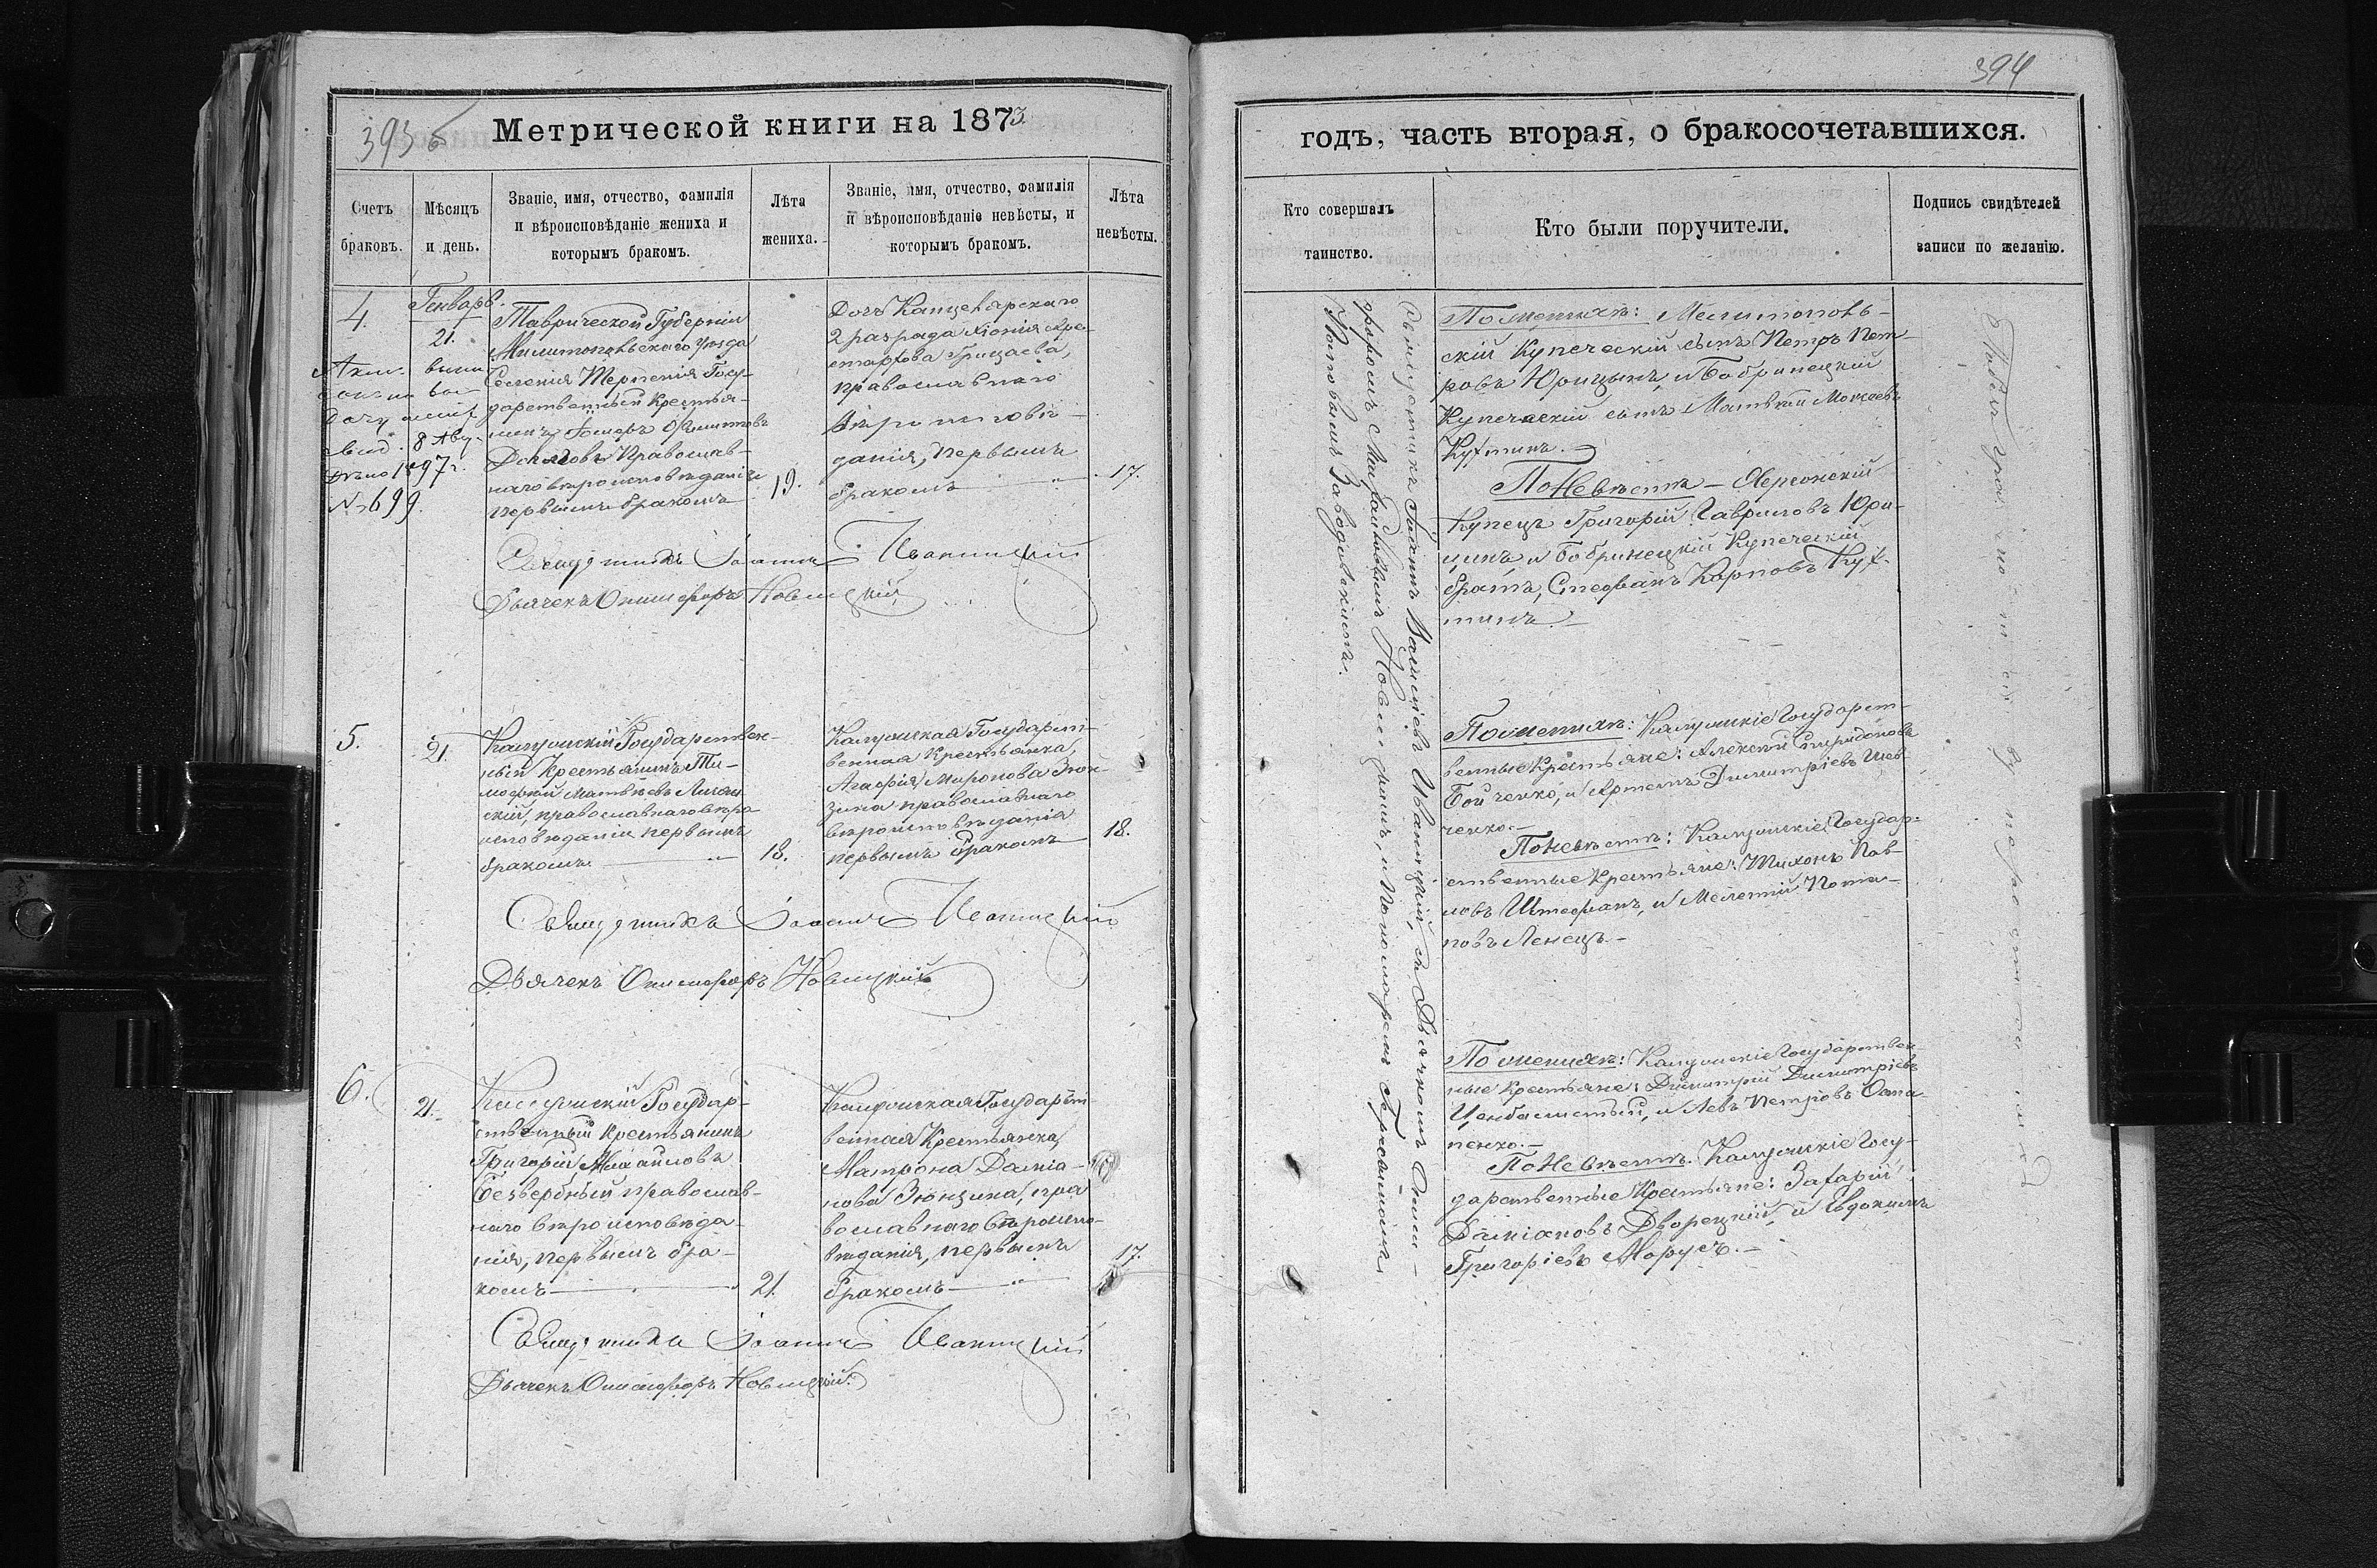 393 б
Метрической книги на 1873
Счетъ
браковъ.
Мѣсяцъ
и день.
Званіе, имя, отчество, фамилія
и вѣроисповѣданіе жениха и
которымъ бракомъ.
Лѣта
жениха.
Званіе, имя, отчество, фамилія
и вѣроисповѣданіе невѣсты, и
которымъ бракомъ.
Лѣта
невѣсты.
4.
Генваръ.
21.
8 Авгу-
1897 г.
№ 699.
Таврической Губерніи
Мелитопольскаго уѣзда
Селенія Терпенія Госу-
дарственный Крестья-
нинъ
Православ-
наго вѣроисповѣданія
первымъ бракомъ
19.
Дочь Канцелярскаго
2 разряда Хіонія Ари-
стархова Грицаева,
православнаго
вѣроисповѣ-
данія, первымъ
бракомъ
17.
Священникъ Іоаннъ Иваницкій
Дьячекъ Онисифоръ Новицкій
5.
21.
Калужскій Государствен-
ный Крестьянинъ Ти-
мофей Матвѣевъ
православнаго вѣро
исповѣданія первымъ
бракомъ
18.
Калужская Государст-
венная Крестьянка,
Агафія Миронова Зюн-
зина православнаго
вѣроисповѣданія
первымъ бракомъ
18.
Священникъ Іоаннъ Иваницкій
Дьячекъ Онисифоръ Новицкій
6.
21.
Калужскій Государ-
ственный Крестьянинъ
Григорій Михайловъ
Безверхный православ-
наго вѣроисповѣда-
нія, первымъ бра-
комъ
21.
Калужская Государст-
венная Крестьянка,
Матрона Даміа-
нова Зюнзина, пра
вославнаго вѣроиспо-
вѣданія, первымъ
бракомъ
17.
Священникъ Іоаннъ Иваницкій
Дьячекъ Онисифоръ Новицкій.
394
годъ, часть вторая, о бракосочетавшихся.
Кто совершалъ
таинство.
Кто были поручители.
Подпись свидѣтелей
записи по желанію.
Священникъ Іоаннъ Васильевъ Иваницкій, съ Дьячкомъ Ониси-
форомъ Новицкимъ, и Пономаремъ
Заводовскимъ.
По женихѣ: Мелитополь-
скій Купеческій сынъ Петръ Пет-
ровъ Юрицынъ, и Бобринецкій
Купеческій сынъ Матвѣй
Кухтинъ.
По Невѣстѣ - Херсонскій
Купецъ Григорій Гавриловъ Юри-
цынъ, и Бобринецкій Купеческій
братъ, Стефанъ Карповъ Кух-
тинъ.
По женихѣ: Калужскіе Государст-
венные Крестьяне: Алексѣй Спиридоновъ
Бойченко, и Артемъ Димитріевъ Шев
ченко.
По Невѣстѣ: Калужскіе Государ-
ственные Крестьяне: Тихонъ Пав-
ловъ Штефанъ, и Мелетій Пота-
повъ Ленецъ.
По женихѣ: Калужскіе Государствен
ные Крестьяне: Димитрій Димитріевъ
Ценбалистый, и Левъ Петровъ Оста-
пенко.
По Невѣстѣ. Калужскіе Госу-
дарственные Крестьяне: Захарій
Даміановъ Дворецкій, и Евдокимъ
Григоріевъ Морусъ.